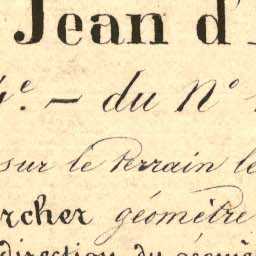 Jean d'
4e. — du No
sur le terrain le
rcher géomètre
direction du